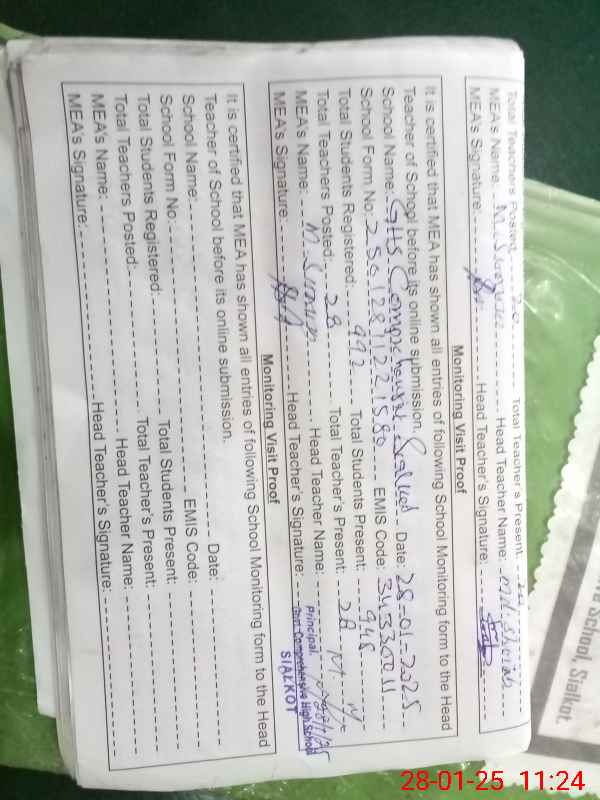 Total Teachers Posted: Total Teacher's Present:
MEA's Name: Head Teacher Name:
MEA's Signature: Head Teacher's Signature:
Monitoring Visit Proof
It is certified that MEA has shown all entries of following School Monitoring form to the Head
Teacher of School before its online submission.
School Name: GHS Comprehensive Sialkot Date: 28-01-2025
School Form No: EMIS Code:
Total Students Registered: 992 Total Students Present: 948
Total Teachers Posted: 28 Total Teacher's Present: 28
MEA's Name: Head Teacher Name:
MEA's Signature: Head Teacher's Signature:
Principal,
Govt. Comprehensive High School
SIALKOT
Monitoring Visit Proof
It is certified that MEA has shown all entries of following School Monitoring form to the Head
Teacher of School before its online submission.
School Name: Date:
School Form No: EMIS Code:
Total Students Registered: Total Students Present:
Total Teachers Posted: Total Teacher's Present:
MEA's Name: Head Teacher Name:
MEA's Signature: Head Teacher's Signature:
School, Sialkot.
28-01-25 11:24